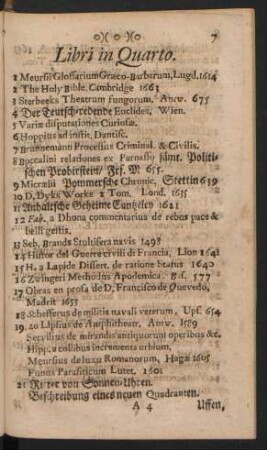 7
Libri in Quarto.
1 Meursii Glossarium Græco-Barbarum, Lugd. 1614
2 The Holy Bible. Cambridge 1663
3 Sterbeeks Theatrum fungorum. Antw. 675
4 Der Teutsch-redende Euclides, Wien.
5 Variæ disputationes Curiosæ.
6 Hoppius ad instit. Dantisc.
7 Brunnemanni Processus Criminal. & Civilis.
8 Boccalini relationes ex Parnasso sämt. Politi-
schen Probierstein, Frf. M. 655.
9 Micrælii Pommersche Chronic, Stettin 639
10 D. Dyke Works 2 Tom. Lond. 1635
11 Anhaltsche Geheime Cantzeley 1621
12 Fab. a Dhona commentarius de rebus pace &
belli gestis.
13 Seb. Brands Stultifera navis 1498
14 Histor del Guerre civili di Francia, Lion 1641
15 H. a Lapide Dissert. de ratione Status 1640
16 Zwingeri Methodus Apodemica. Bas. 577
17 Obras en prosa de D. Francisco de Quevedo,
Madrit 1655
18 Schefferus de militia navali veterum, Upf. 654
19. 20 Lipsius de Amphitheatr. Antw. 1589
Servilius de mirandis antiquorum operibus &c.
Hipp. a collibus incrementa urbium,
Meursius de luxu Romanorum, Hagæ 1605
Funus Parasiticum Lutet. 1601
21 Ritter von Sonnen-Uhren.
Beschreibung eines neuen Quadranten.
A 4
Uffen,